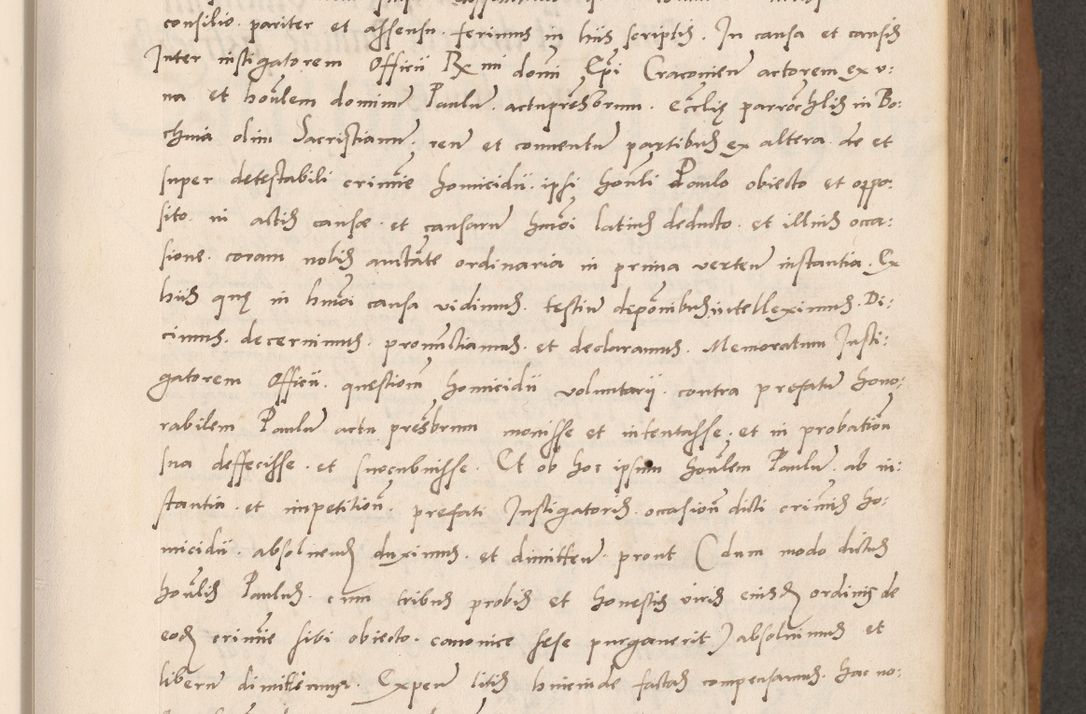 consilio pariter et assensu. ferimus in hiis scriptis. In causa et causis
Inter instigatorem Officii Rx mi domi Epi Cracovien actorem ex v:
na et houlem dominu Paulu. actupresbrum. Ecclię parrochlis in Bo:
chnia olim Sacristianu. reu et conventu partibus ex altera. de et
super detestabili crimie homicidii. ipsi houli Paulo obiecto et oppo:
sito. in actis causæ. et causaru hmoi latius deducto. et illius occa:
sione. coram nobis auctate ordinaria in prima verten instantia. Ex
hiis quę in hmoi causa vidimus. testiu deponibus intelleximus. Di:
cimus. decernimus. pronuctiamus. et declaramus. Memoratum Insti:
gatorem Officii. questiom homicidii voluntarii. contra prefatu hono:
rabilem Paulu actu presbrum movisse et intentasse. et in probation
sua deffecisse. et succubuisse. Et ob hoc ipsum houlem Paulu. ab in:
stantia. et impetition. prefati Instigatoris. occasion dicti crimis ho:
micidii. absolvend duximus. et dimitten. prout (dum modo dictus
houlis Paulus. cum tribus probis et honestis viris eiusd ordinis de
eod crimie sibi obiecto. canonice sese purgaverit) absolvimus et
liberu dimittimus. Expen litis hincinde factas compensamus. hac no: